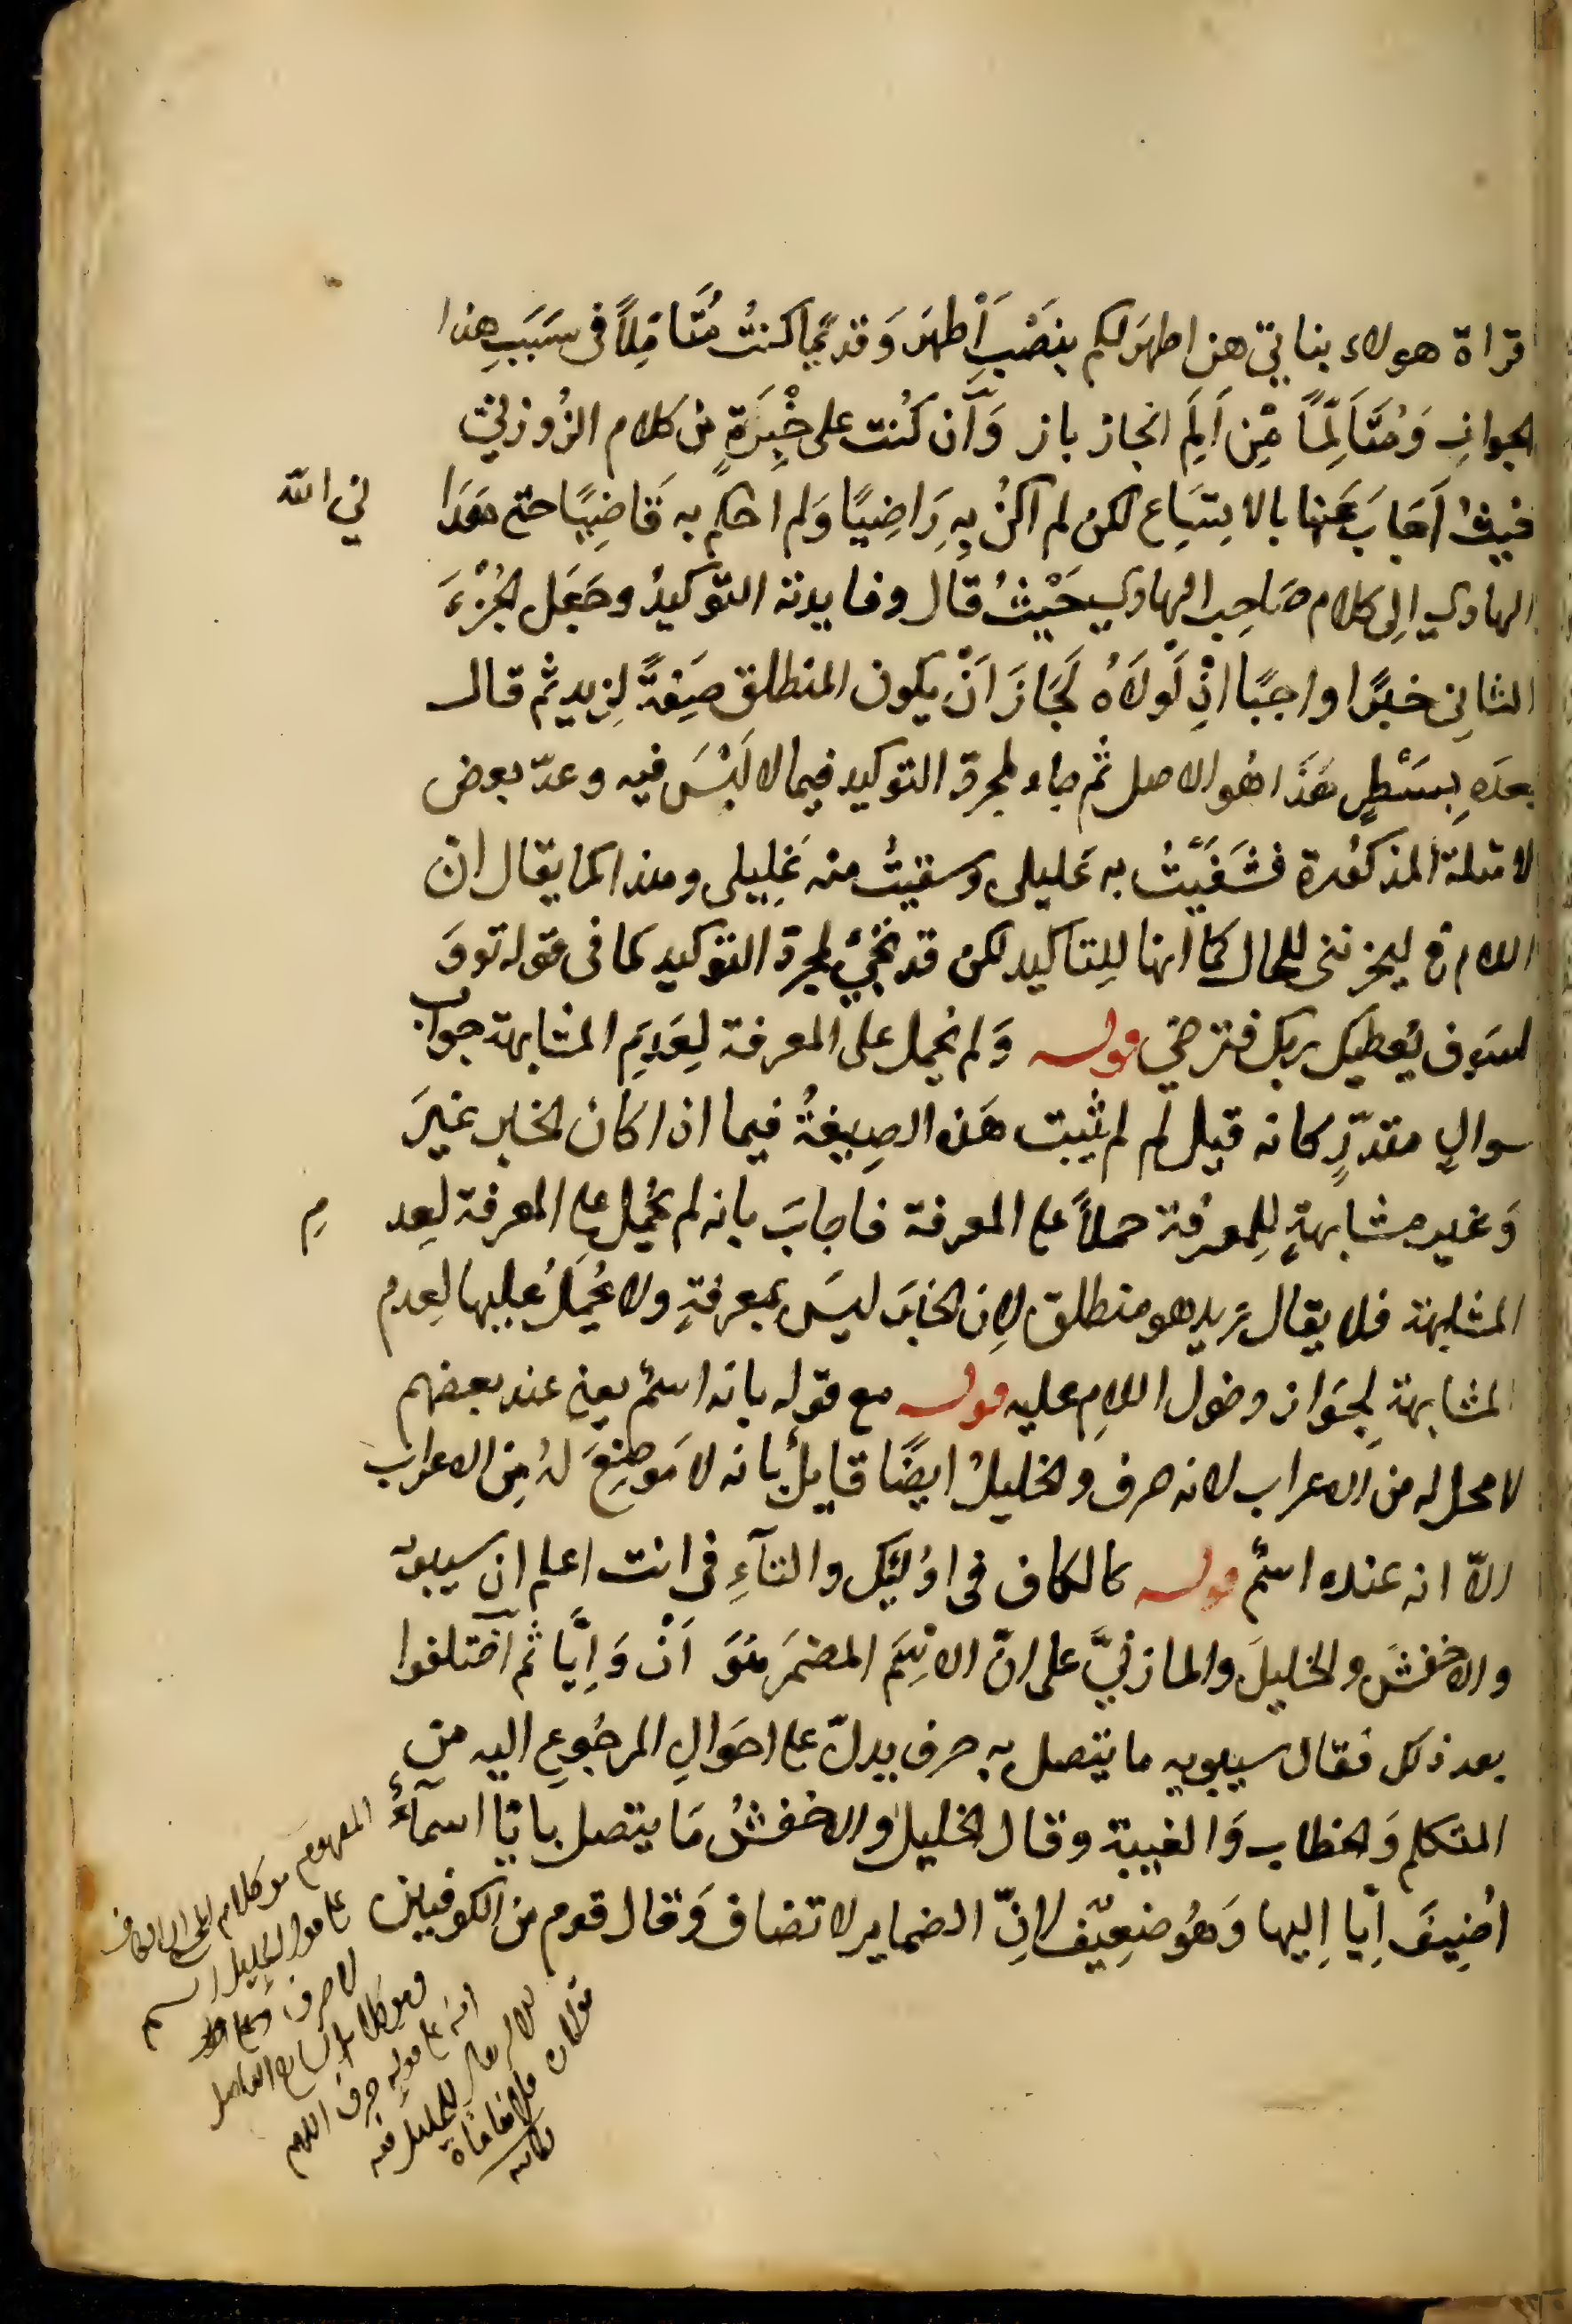 قراة هولاء بناتي هن اطهرَ لكم بنَصْبِ اَطْهرَ وَقديمًا كنتُ مُتَأمِّلاً فى سَبَبِ هذا
الجوابِ وَمُتَأَلِّمًا مِّن اَلَمِ انجاز باز وَاَن كُنت على خِبْرَةٍ من كلام الزُوزنيّ
فيفُ اَجَابَ عَنها بالاتِّسَاع لكن لم اكنْ بِه رَاضِيًا وَلم احكم به قَاضِيًا حتى هَدَا
ني الله
الهادي اِلى كلام صَاحِب الهادي حَيْثُ قال وفايدته التوكيدُ وجَعَل الجُزْءَ
الثانِي خبرًا واجبًا اذِ لَوْلَاهُ لَجَازَ اَنْ يكون المنطلق صِفةً لِزيد ثم قال
بعدَه بِسَسْطرٍ هَذَا هُو الاصل ثم جاء لمجرّد التوكيد فيما لا لَبْسَ فيه وعدّ بعض
الامثلة المذكُورة فشَفَيْتُ به عَليلى وسقيتُ منه غَلِيلى وهذا كما يقال ان
اللام في ليحزننى للحال كما انها لِلتاكيد لكن قد تجيْ لمجرّد التوكيد كما فى قوله تع وَ
لسَوف يُعطيك ربك فترضي قوله وَلم يحمل على المعرفة لِعَدَمِ المشابهة جواب
سوالٍ مقدّرٍ كانه قيل لم لم يثبت هَذه الصِيغةُ فيما اذا كان الخبر غيرَ
وَغير مشابهةٍ لِلمعرفة حملاً على المعرفة فاجابَ بانه لم يُحمل على المعرفة لِعد
م
المشابهة فلا يقال زيد هو منطلق لاِن الخبَر ليسَ بمعرفةٍ ولا يُحمَلُ عليها لِعدم
المشابهة لِجَواز دخول اللامِ عليه قوله مع قوله بانه اسمٌ يعني عند بعضهم
لا محل له من الاعراب لانه حرف والخليلُ ايضًا قايلٌ بانه لا مَوضِعَ لهُ مِن الاعراب
الاّ انه عنده اسمٌ قوله كالكاف فى اوُليٓك والتآءِ فى انت اعلم ان سيبويه
والاخفشَ والخليلَ والمازنيَّ على انّ الاسِمَ المضمَر هُوَ اَنْ وَاِيَّا ثم اختلفوا
بعد ذلك فقال سيبويه ما يتصل به حرف يدلّ على احَوالِ المرجُوع اليه من
المتكلم وَالخطاب وَالغيبة وقال الخليل والاخفشُ مَا يتصل باِيّا اسمآءٌ
اُضِيفَ اِيّا اِليها وَهُو ضعِيّف لانِّ الضماير لا تضاف وَقال قوم من الكوفيين
المفهوم من كلام ان الكاف
على قول الخليل اسم
لا حرف
انه على قوله حرف اللهم
للخليل فيه
قولان فلا منافاة